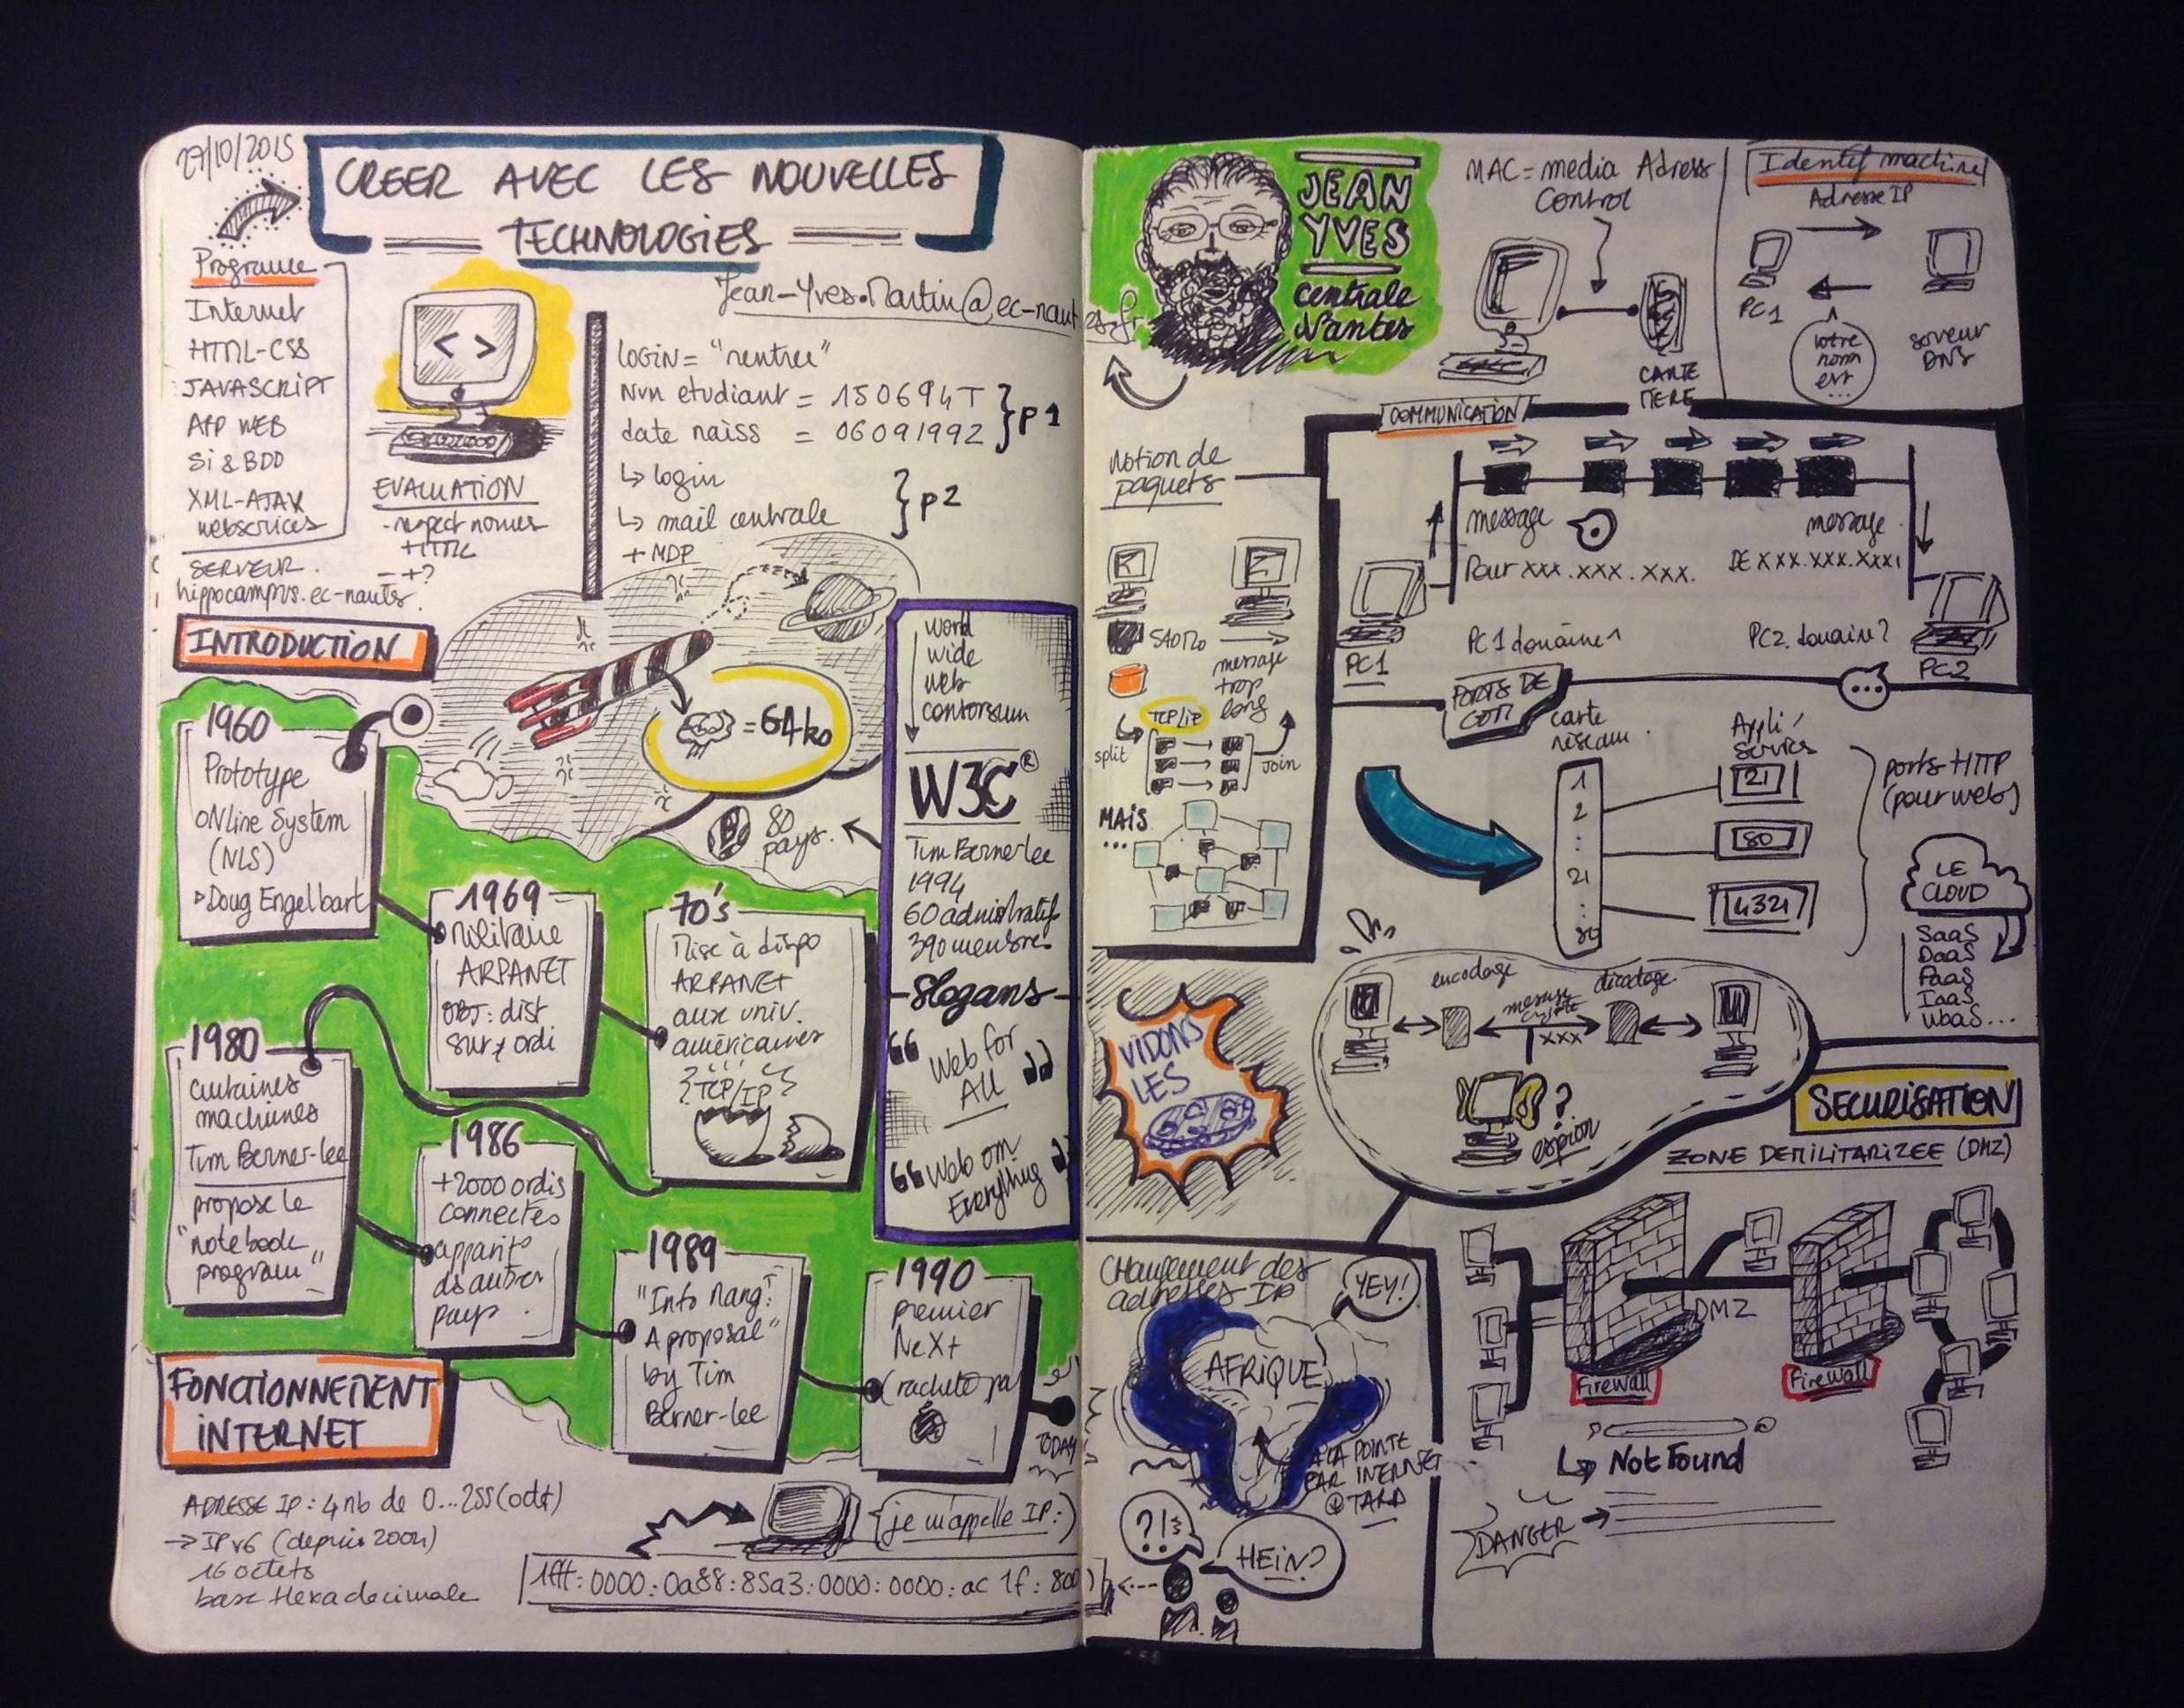 27/10/2015
CREER AVEC LES NOUVELLES
TECHNOLOGIES
Programe
Internet
HTML-CSS
JAVASCRIPT
APP WEB
Si & BDD
XML-AJAX
webservices
SERVEUR
hippocampus.ec-nantes.
< >
EVALUATION
- respect normes
+ HTML
- +?
Jean-Yves.Martin@ec-nant
es.fr
LOGIN = "rentree"
Num etudiant = 150694T } P1
date naiss = 06091992
↳ login
↳ mail centrale } P2
+ MDP
INTRODUCTION
= 64 ko
1960
Prototype
ONline System
(NLS)
Doug Engelbart
1969
Militaire
ARPANET
OBJ: dist
sur ≠ ordi
70's
Mise à dispo
ARPANET
aux univ.
américaines
{TCP/IP}
1980
certaines
machines
Tim Berner-lee
propose le
"notebook
program"
1986
+2000 ordis
connectés
apparit°
ds autres
pays.
1989
"Info Mang:
A proposal"
by Tim
Berner-lee
1990
premier
NeXt
(racheté pa
TODAY
80
pays.
word
wide
web
consorsium
W3C®
Tim Berner lee
1994
60 administratifs
390 membres
Slogans
"Web for
All"
"Web om
Everything"
FONCTIONNEMENT
INTERNET
ADRESSE IP : 4 nb de 0...255 (octet)
→ IP v6 (depuis 2004)
16 octets
base Hexadecimale
{je m'appelle IP:)
1fff:0000:0a88:85a3:0000:0000:ac 1f:800
JEAN
YVES
centrale
Nantes
MAC = media Adress
Control
CARTE
MERE
Identif machine
Adresse IP
PC1
Votre
nom
est
...
serveur
DNS
Notion de
paquets
5Ao Mo
message
trop
long
TCP/IP
split
JOIN
MAIS
...
COMMUNICATION
message
Pour xxx.xxx.xxx.
message
DE XXX.XXX.XXX1
PC1
PC1 domaine 1
PC2. domaine 2
PC2
PORTS DE
COM
carte
réseau.
1
2
:
21
:
80
Appli/
Services
21
80
4321
ports HTTP
(pour web)
LE
CLOUD
SaaS
DaaS
PaaS
IaaS
WbaaS...
VIDONS
LES
encodage
message
crypté
xxx
décodage
?
espion
SECURISATION
ZONE DEMILITARIZEE (DMZ)
DMZ
Firewall
Firewall
↳ Not Found
DANGER →
CHangement des
adresses IP
YEY!
AFRIQUE
A LA POINTE
PAR INTERNET
+ TARD
?!
HEIN?